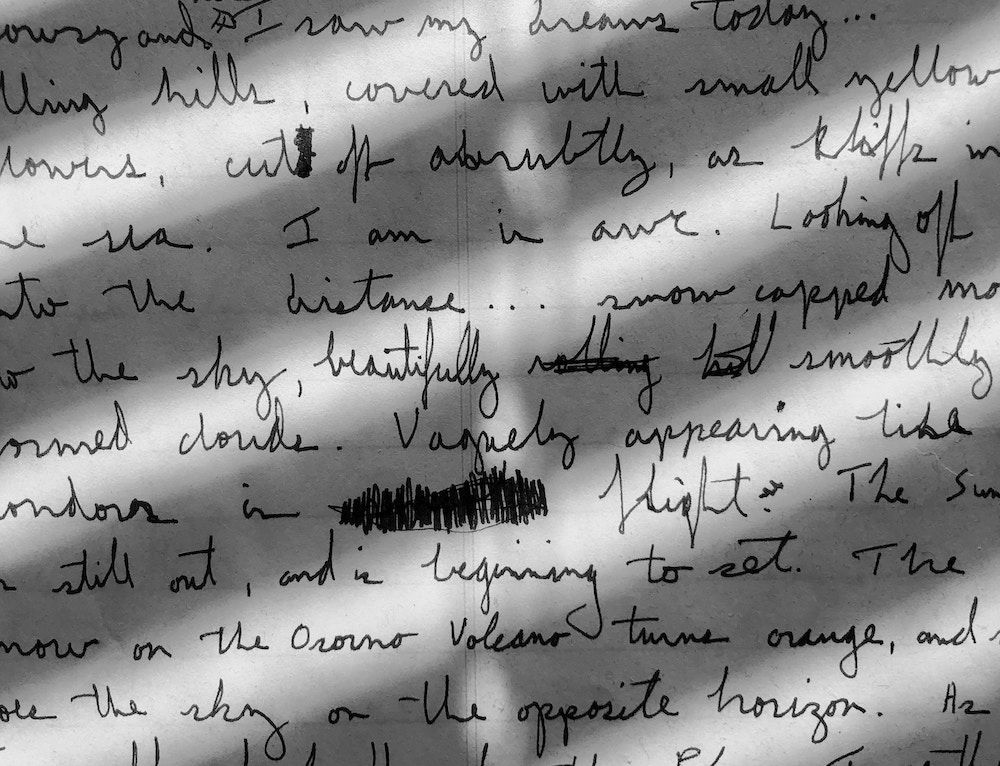 owsy and I saw my dreams today...
lling hills, covered with small yellow
lowers, cut off abrubtly, as kliffs in
e sea. I am in awe. Looking off
nto the distance.... snow capped mo
w the sky, beautifully rolling smoothly
ormed clouds. Vaguely appearing like
ondors in flight. The Sun
still out, and is beginning to set. The
now on the Osorno Volcano turns orange, and
oes the sky on the opposite horizon. As